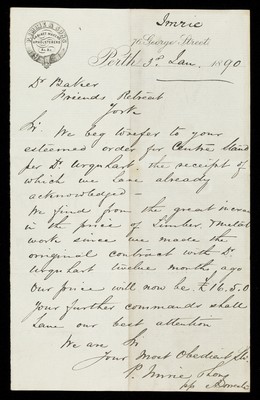 Imrie
76 George Street
Perth 3d Jan. 1890
Dr Baker
Friends Retreat
York
Sir. We beg to refer to your
esteemed order for Centre Stand
per Dr Urquhart, the receipt of
which we have already
acknowledged —
We find from the great increase
in the price of timber, & metal
work since we made the
original contract with Dr
Urquhart twelve months ago
Our price will now be £16.5.0
Your further commands shall
have our best attention
We are Sir
Your Most Obedient
P. Imrie & Sons
p/p